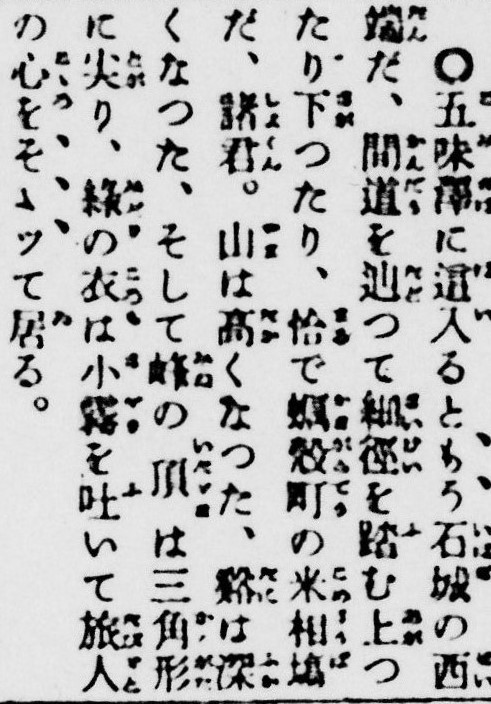 〇五味澤に這入るともう石城の西
端だ、間道を辿つて細徑を踏む上つ
たり下つたり、恰で蠣殻町の米相塲
だ、諸君。山は高くなつた、谿は深
くなつた、そして峰の頂は三角形
に尖り、綠の衣は小霧を吐いて旅人
の心をそゝツて居る。